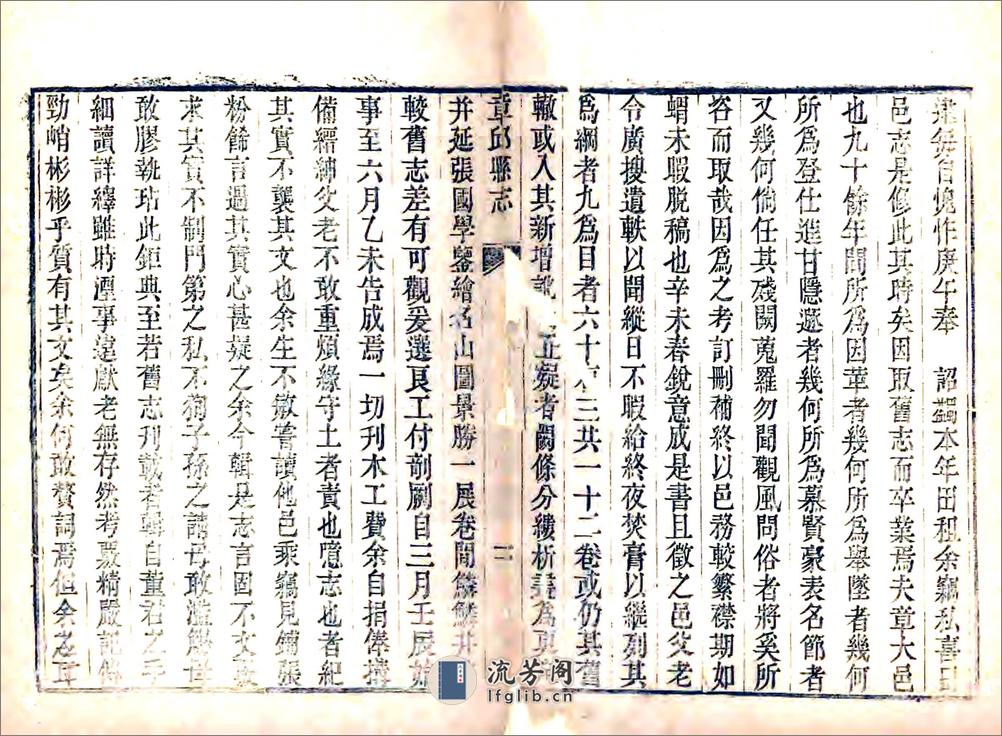 每自愧怍庚午奉　詔蠲本年田租余竊私喜曰
邑志是修此其時矣因取舊志而卒業焉夫章大邑
也九十餘年間所為因革者幾何所為舉墜者幾何
所為登仕進甘隱遯者幾何所為慕賢豪表名節者
又幾何倘任其殘闕蒐羅勿聞觀風問俗者將奚所
咨而取哉因為之考訂刪補終以邑務較繁襟期如
蝟未暇脫稿也辛未春銳意成是書且徵之邑父老
令廣搜遺軼以聞縱日不暇給終夜焚膏以繼列其
為綱者九為目者六十有三共一十二卷或仍其舊
轍或入其新增訛正疑者闕條分縷析義為更
章邱縣志
二
并延張國學鑒繪名山圖景勝一展卷間鱗鱗井
較舊志差有可觀爰選良工付剞劂自三月壬辰始
事至六月乙未告成焉一切刊木工費余自捐俸擣
備縉紳父老不敢重煩緣守土者責也噫志也者紀
其實不襲其文也余生不敏嘗讀他邑乘竊見鋪張
粉餙言過其實心甚疑之余今輯是志言固不文義
求其實不制門第之私不徇子孫之請毋敢濫觴毋
敢膠執玷此鉅典至若舊志刊載者輯自董君之手
細讀詳繹雖時湮事遠獻老無存然考覈精嚴記傳
勁峭彬彬乎質有其文矣余何敢贅詞焉但余之耳
流芳阁
lfglib.cn